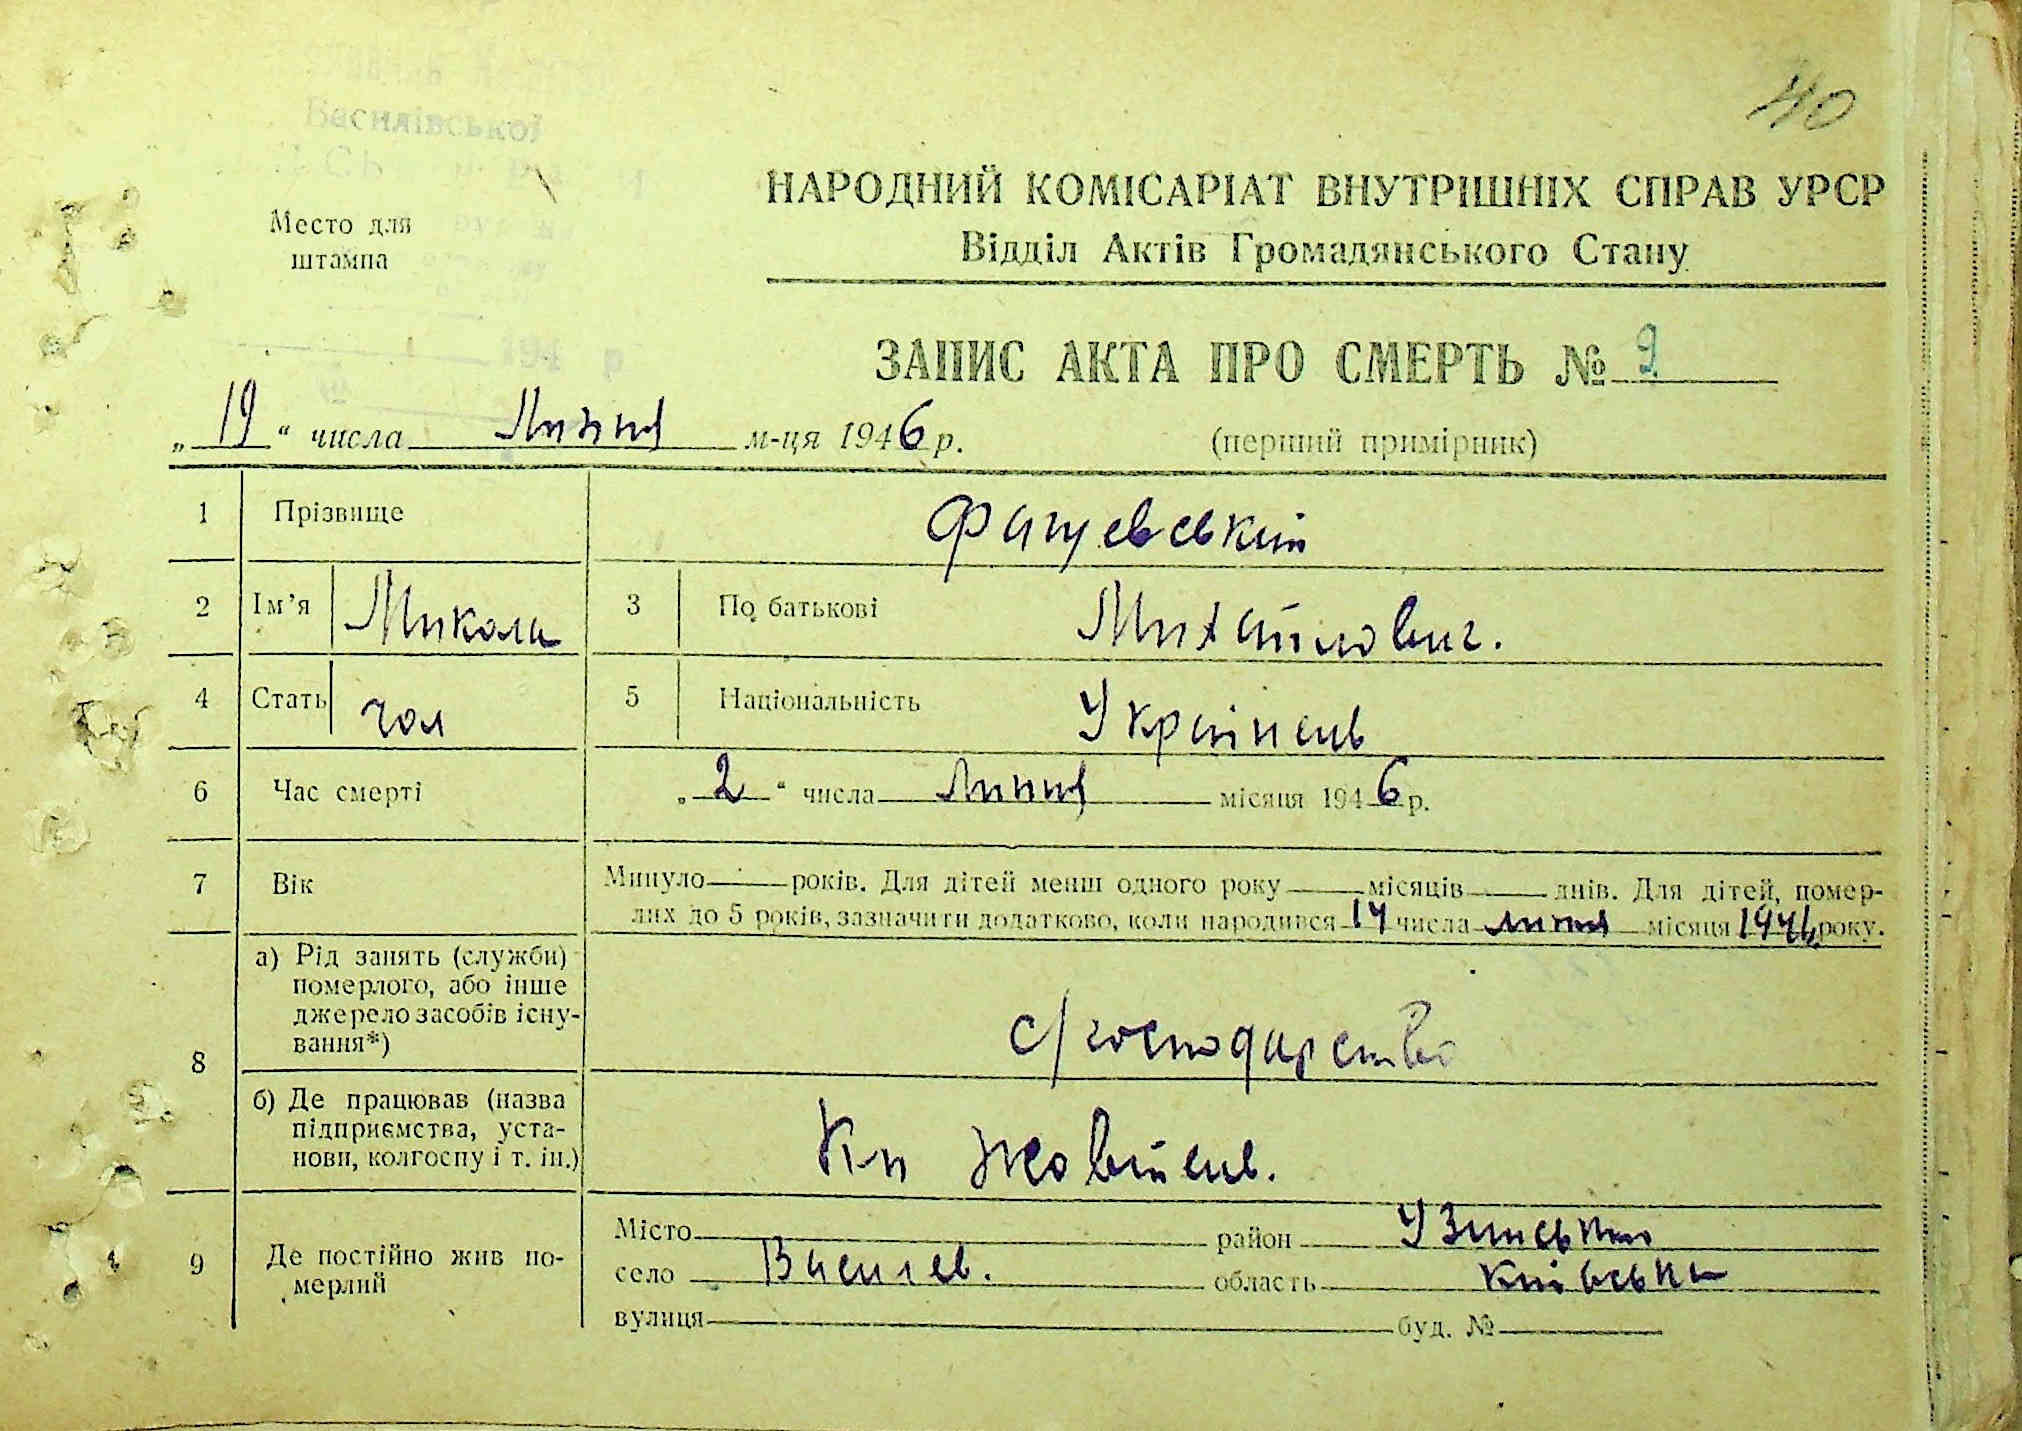 40
Василівської
Место для
штампа
НАРОДНИЙ КОМІСАРІАТ ВНУТРІШНІХ СПРАВ УРСР
Відділ Актів Громадянського Стану
ЗАПИС АКТА ПРО СМЕРТЬ № 2
„19“ числа Липня м-ця 1946 р.
(перший примірник)
1 Прізвище
2 Ім’я Микола 3 По батькові Михайлович.
4 Стать чол 5 Національність Українець
6 Час смерті „2“ числа липня місяця 1946 р.
7 Вік Минуло — років. Для дітей менш одного року — місяців — днів. Для дітей, помер-
лих до 5 років, зазначити додатково, коли народився числа місяця року.
8 а) Рід занять (служби)
померлого, або інше
джерело засобів існу-
вання*)
с/господарство
б) Де працював (назва
підприємства, уста-
нови, колгоспу і т. ін.)
9 Де постійно жив по-
мерлий
Місто район Узинський
село Василев. область Київська
вулиця буд. №